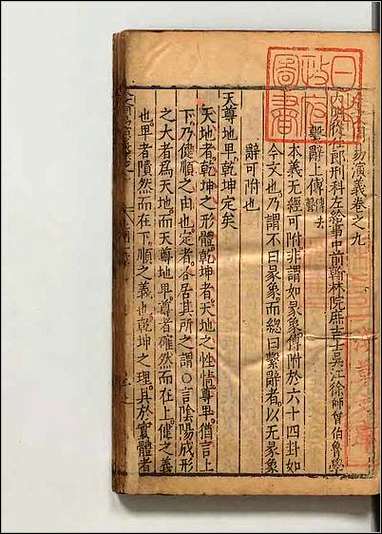 今文周易演義卷之九
内陞徵仕郎刑科左給事中前翰林院庶吉士吳江徐師曾伯魯學
繫辭上傳
本義無經可附非謂如彖象傳附於六十四卦如
今文也乃謂不曰彖象而總曰繫辭者以无彖象
辭可附也
天尊地卑乾坤定矣
天地者乾坤之形體乾坤者天地之性情尊卑猶言上
下乃健順之由也定者各居其所之謂○言陰陽成形
之大者為天地而天尊地卑尊者確然而在上健之義
也卑者隤然而在下順之義也乾坤之理具於實體者
日本
政府
圖書